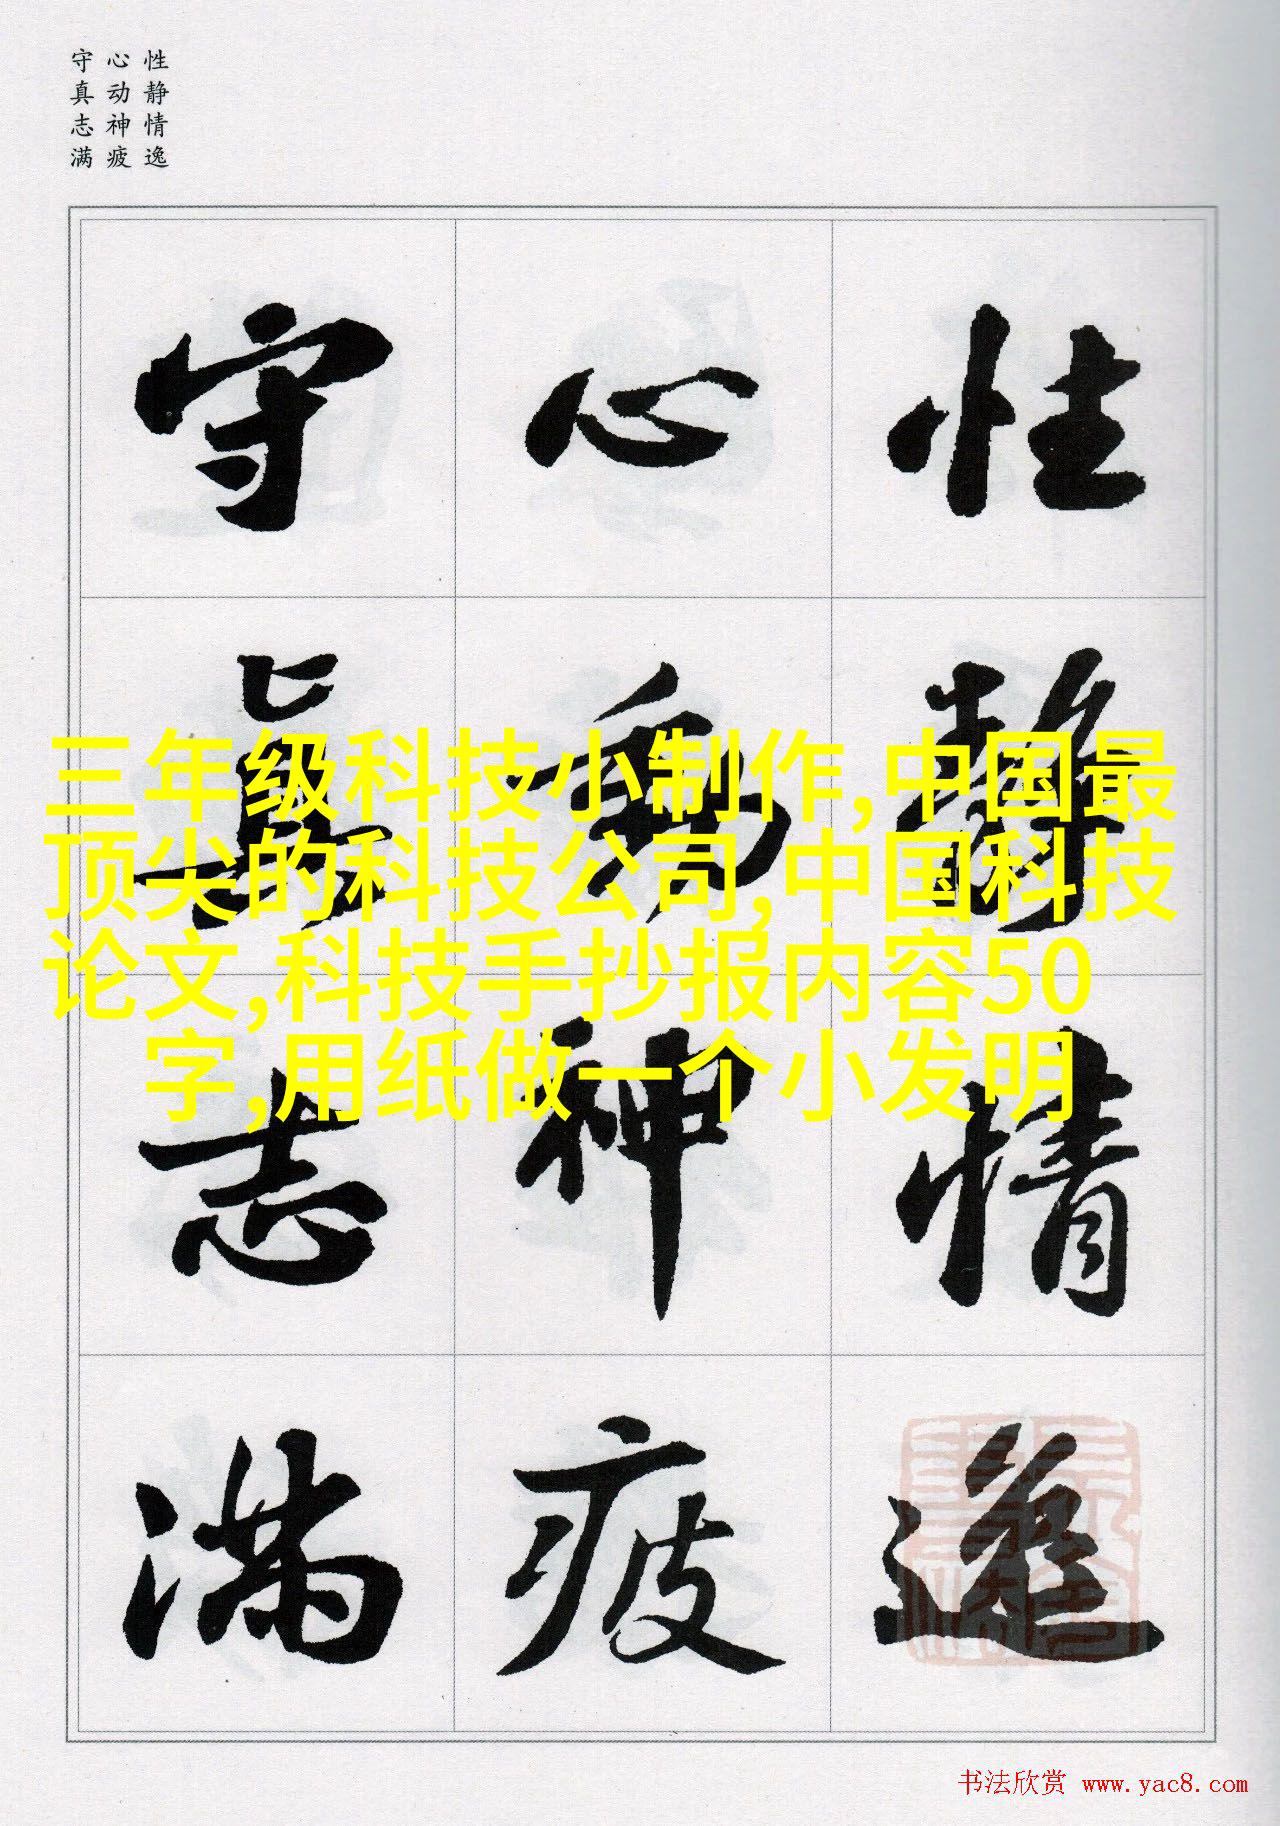 性静情逸
心动神疲
守真志满
性靜情逸
心動神疲
守眞志滿
三年级科技小制作,中国最
顶尖的科技公司,中国科技
论文,科技手抄报内容50
字,用纸做一个小发明
书法欣赏 www.yac8.com